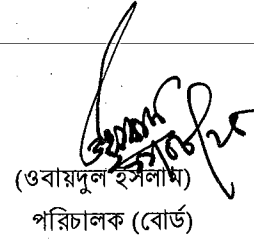 (ওবায়দুল ইসলাম)
পরিচালক (বোর্ড)